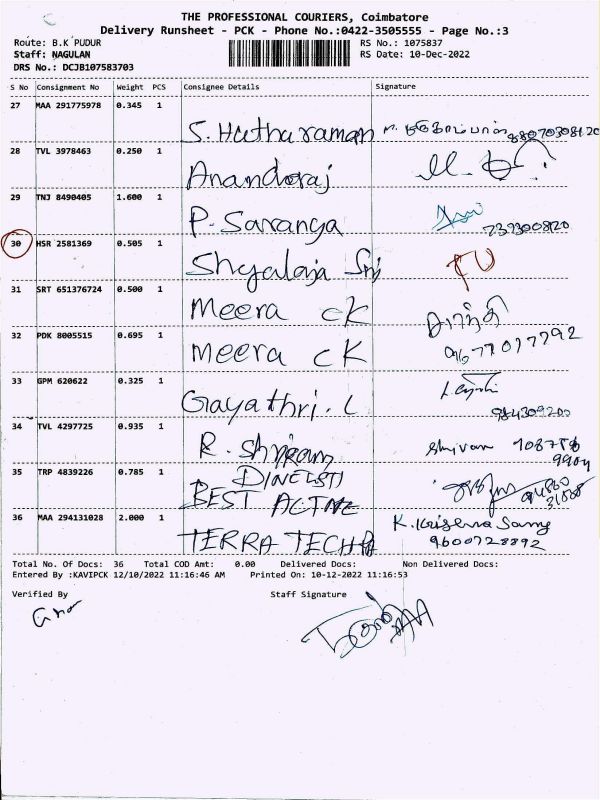 THE PROFESSIONAL COURIERS, Coimbatore
Delivery Runsheet - PCK - Phone No.:0422-3505555 - Page No.:3
Route: B.K PUDUR
RS No.: 1075837
Staff: NAGULAN
RS Date: 10-Dec-2022
DRS No.: DCJB107583703
S No Consignment No Weight PCS Consignee Details Signature
27 MAA 291775978 0.345 1
S. Hatharaman
28 TVL 3978463 0.250 1
Anandoraj
29 TNJ 8490405 1.600 1
P. Saranga
30 HSR 2581369 0.505 1
Shyalaja Sri
31 SRT 651376724 0.500 1
Meera CK
32 PDK 8005515 0.695 1
9677077292
Meera CK
33 GPM 620622 0.325 1
Gayathri. L
34 TVL 4297725 0.935 1
R. Shriram
35 TRP 4839226 0.785 1
BEST ACTIVE
36 MAA 294131028 2.000 1
K. Krishna Samy
9600728892
TERRA TECH
Total No. Of Docs: 36 Total COD Amt: 0.00 Delivered Docs: Non Delivered Docs:
Entered By :KAVIPCK 12/10/2022 11:16:46 AM Printed On: 10-12-2022 11:16:53
Verified By Staff Signature